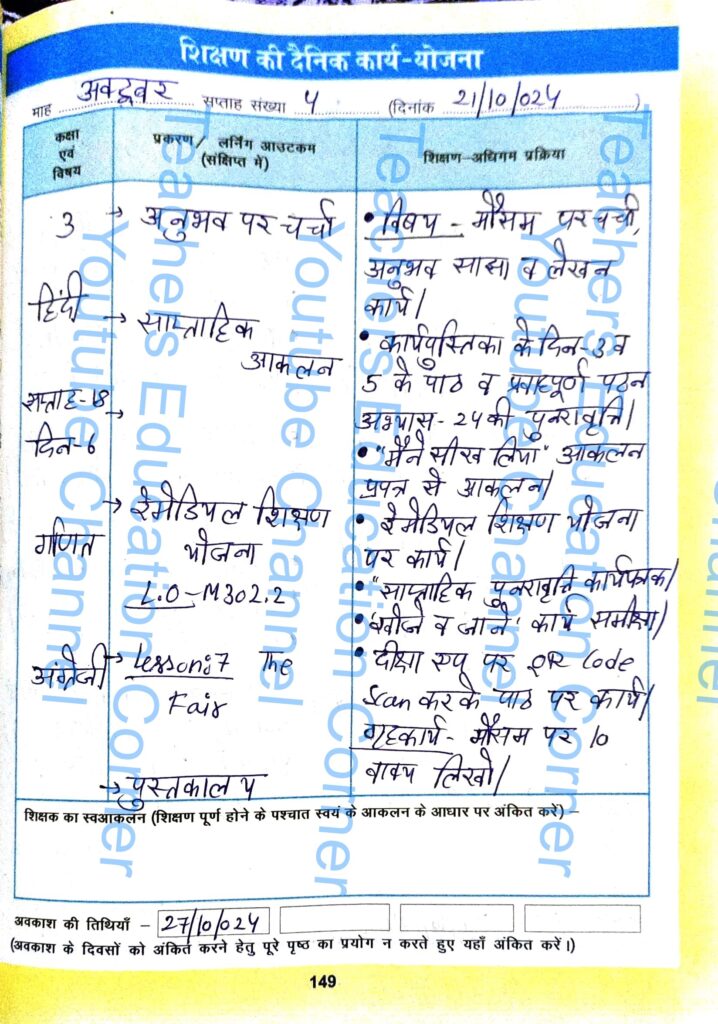 शिक्षण की दैनिक कार्य-योजना
माह अक्टूबर सप्ताह संख्या 4 (दिनांक 21/10/024)
कक्षा एवं विषय
प्रकरण/ लर्निंग आउटकम (संक्षिप्त में)
शिक्षण-अधिगम प्रक्रिया
3
हिंदी
सप्ताह-18
दिन-6
गणित
अंग्रेजी
→ अनुभव पर चर्चा
→ साप्ताहिक
आकलन
→
→ रेमेडियल शिक्षण
योजना
L.O-M302.2
→ Lesson:7 The
Fair
→ पुस्तकालय
• विषय - मौसम पर चर्चा,
अनुभव साझा व लेखन
कार्य।
• कार्यपुस्तिका के दिन-3 व
5 के पाठ व प्रवाहपूर्ण पठन
अभ्यास-24 की पुनरावृत्ति।
• "मैंने सीख लिया" आकलन
प्रपत्र से आकलन।
• रेमेडियल शिक्षण योजना
पर कार्य।
• "साप्ताहिक पुनरावृत्ति कार्यपत्रक।
• "खोजें व जानें" कार्य समीक्षा।
• दीक्षा एप पर QR Code
Scan करके पाठ पर कार्य।
गृहकार्य - मौसम पर 10
वाक्य लिखो।
शिक्षक का स्वआकलन (शिक्षण पूर्ण होने के पश्चात स्वयं के आकलन के आधार पर अंकित करें) –
अवकाश की तिथियाँ – 27/10/024
(अवकाश के दिवसों को अंकित करने हेतु पूरे पृष्ठ का प्रयोग न करते हुए यहाँ अंकित करें।)
149
Teachers Education Corner
Youtube Channel
Teachers Education Corner
Youtube Channel
Teachers Education Corner
Youtube Channel